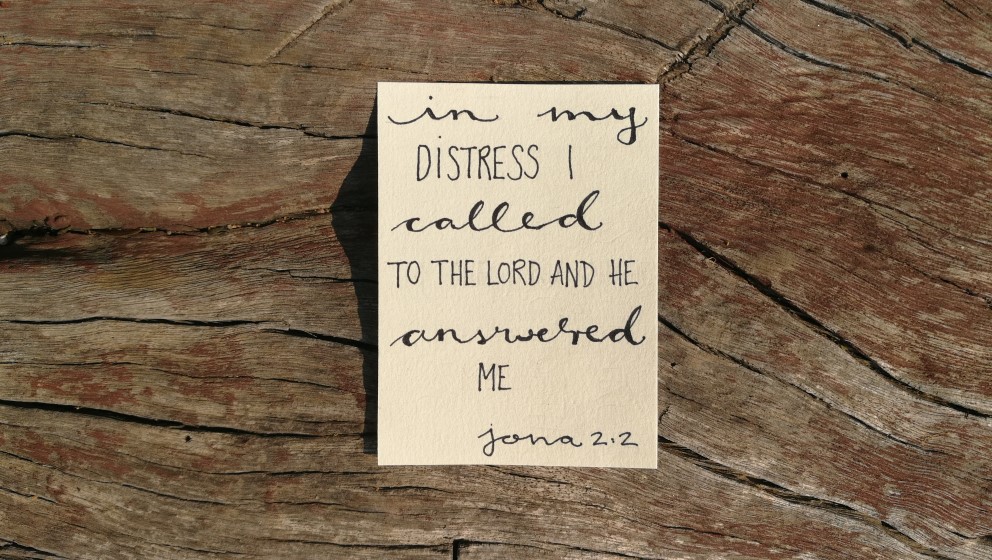 in my
DiSTRESS I
called
TO THE LORD AND HE
answered
ME
jona 2:2